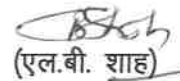 (एल.बी. शाह)